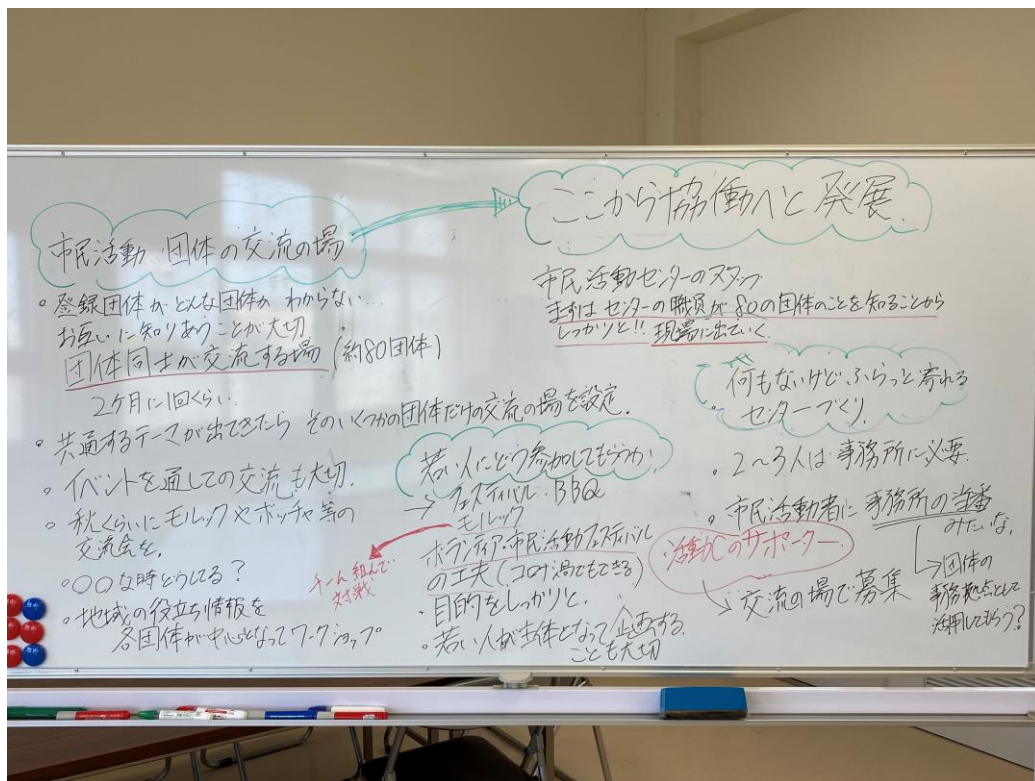 市民活動 団体の交流の場
・登録団体がどんな団体か わからない...
お互いに知りあうことが大切
団体同士が交流する場 (約80団体)
2ケ月に1回くらい.
・共通するテーマが出てきたら そのいくつかの団体だけの交流の場を設定.
・イベントを通しての交流も大切.
・秋くらいにモルックやボッチャ等の
交流会を.
・〇〇な時どうしてる?
・地域の役立ち情報を
各団体が中心となってワークショップ
若い人にどう参加してもらうか
→ フェスティバル・BBQ
モルック
チーム組んで
対戦
ボランティア・市民活動フェスティバル
の工夫(コロナ渦でもできる)
・目的をしっかりと.
・若い人が主体となって企画する
ことも大切
ここから協働へと発展.
市民活動センターのスタッフ
まずはセンターの職員が80の団体のことを知ることから
しっかりと!! 現場に出ていく
何もないけど、ふらっと寄れる
・センターづくり.
・2~3人は事務所に必要.
・市民活動者に事務所の当番
みたいな.
→団体の
事務拠点として
活用してもらう?
活動Cのサポーター.
→ 交流の場で募集